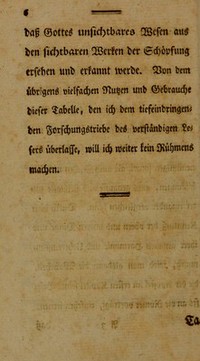 6
daß Gottes unsichtbares Wesen aus
den sichtbaren Werken der Schöpfung
ersehen und erkannt werde. Von dem
übrigens vielfachen Nutzen und Gebrauche
dieser Tabelle, den ich dem tiefeindringen-
den Forschungstriebe des verständigen Le-
sers überlasse, will ich weiter kein Rühmens
machen.
Ta